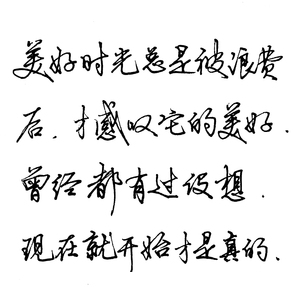 美好时光总是被浪费
后，才感叹它的美好．
曾经都有过设想．
现在就开始才是真的．